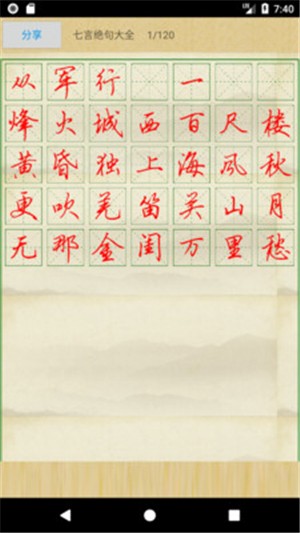 7:40
分享 七言绝句大全 1/120
从军行 一
烽火城西百尺楼
黄昏独上海风秋
更吹羌笛关山月
无那金闺万里愁